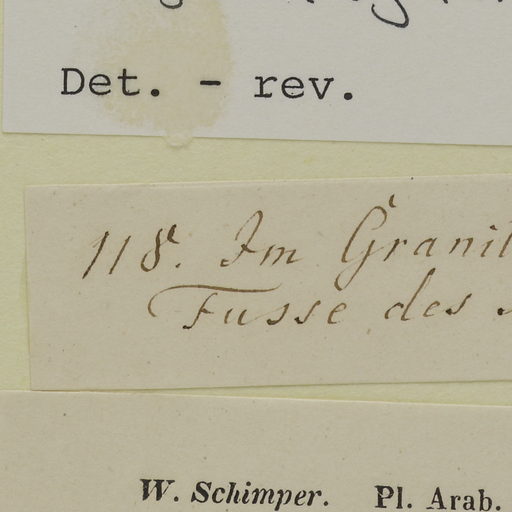 Det. - rev.
118. Im Granit
Fusse des
W. Schimper. Pl. Arab.